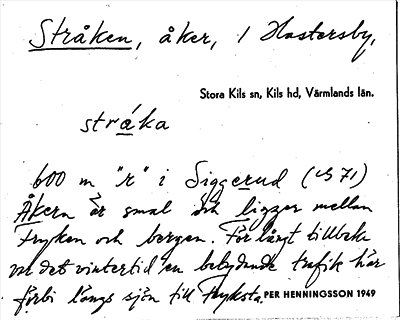 Stråken, åker, i Hastersby,
Stora Kils sn, Kils hd, Värmlands län.
stråka
600 m "r" i Siggerud (LS 71)
Åkern är smal och ligger mellan
Fryken och bergen. För långt tillbaka
var det vintertid en betydande trafik här
förbi längs sjön till Fryksta.
PER HENNINGSSON 1949